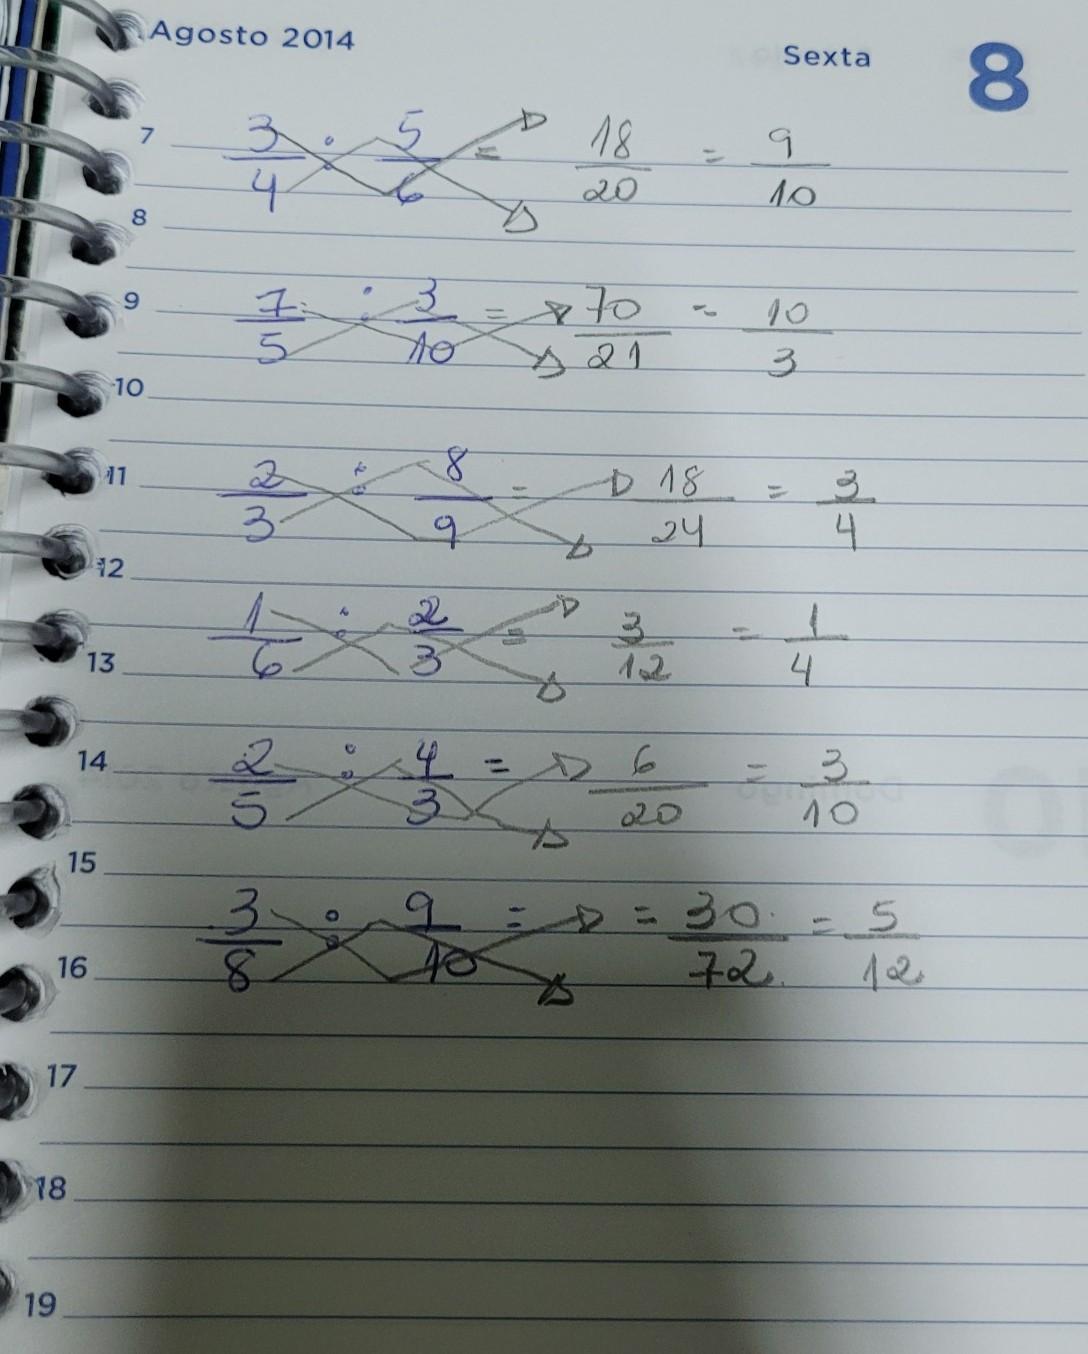 Agosto 2014
Sexta 8
7 3/4 ÷ 5/6 = 18/20 = 9/10
8
9 7/5 ÷ 3/10 = 70/21 = 10/3
10
11 2/3 ÷ 8/9 = 18/24 = 3/4
12
1/6 ÷ 2/3 = 3/12 = 1/4
13
14 2/5 ÷ 4/3 = 6/20 = 3/10
15
3/8 ÷ 9/10 = = 30/72 = 5/12
16
17
18
19